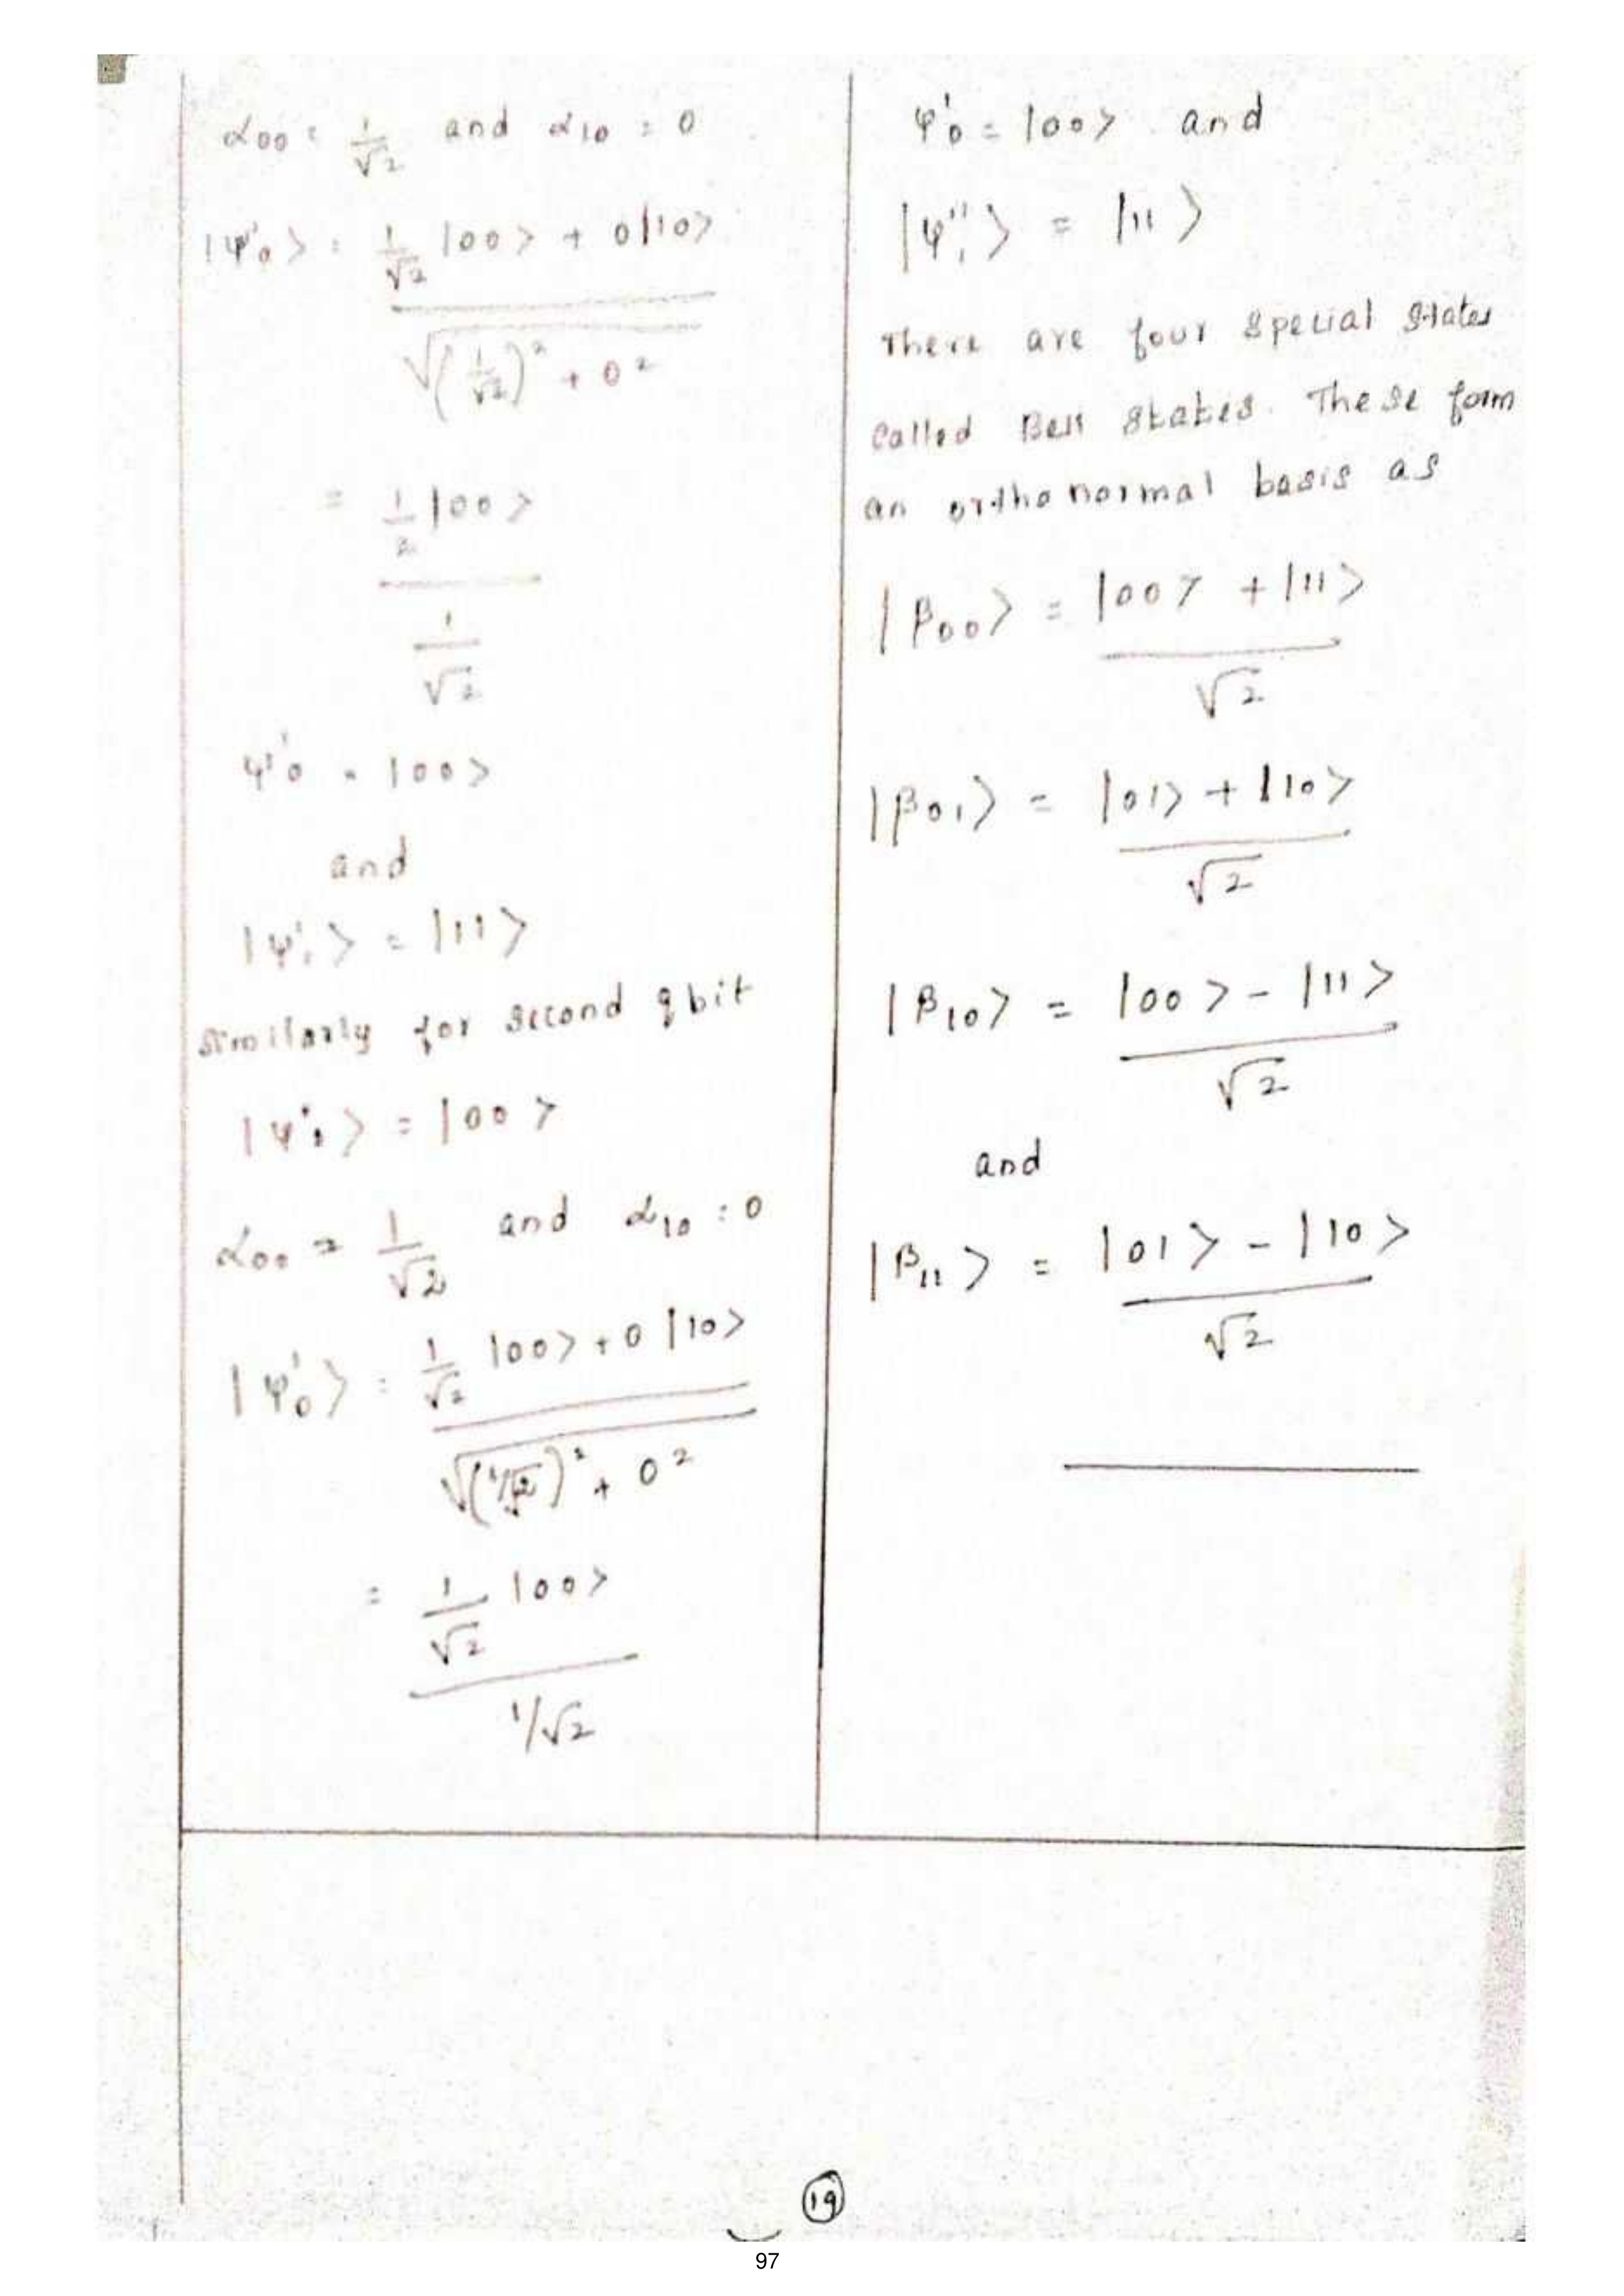 α00 = 1/√2 and α10 = 0
|ψ'0> = 1/√2 |00> + 0|10>
√(1/√2)² + 0²
= 1/2 |00>
1/√2
ψ'0 = |00>
and
|ψ'1> = |11>
Similarly for second qbit
|ψ'> = |00>
α00 = 1/√2 and α10 = 0
|ψ'0> = 1/√2 |00> + 0 |10>
√(1/√2)² + 0²
= 1/√2 |00>
1/√2
ψ'0 = |00> and
|ψ''1> = |11>
There are four special states
called Bell states. These form
an orthonormal basis as
|β00> = |00> + |11>
√2
|β01> = |01> + |10>
√2
|β10> = |00> - |11>
√2
and
|β11> = |01> - |10>
√2
19
97